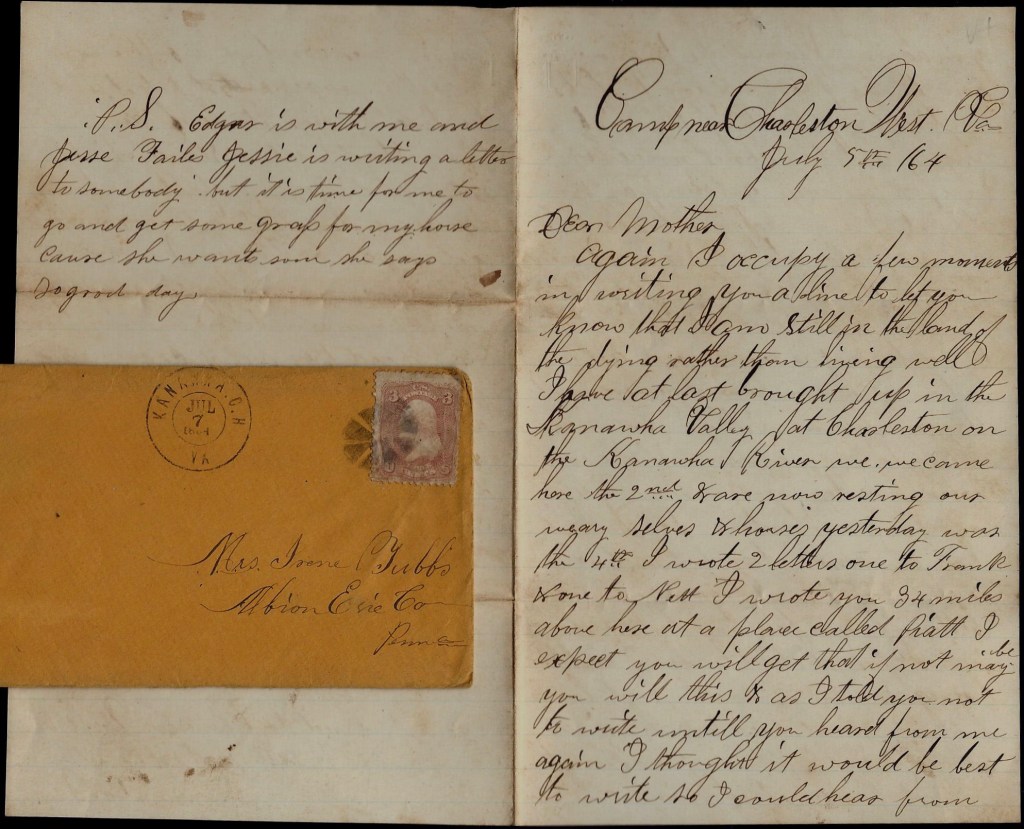 P.S. Edgar is with me and
Jesse Failes Jessie is writing a letter
to somebody but it is time for me to
go and get some grass for my horse
cause she wants som she says
so good day
KANAWHA C.H.
JUL
7
1864
VA
3 3
Mrs. Irene Tubbs
Albion Erie Co
Penna
Camp near Charleston West. Va
July 5th /64
Dear Mother
again I occupy a few moments
in writing you a line to let you
know that I am still in the land of
the dying rather than living well
I have at last brought up in the
Kanawha Valley at Charleston on
the Kanawha River we. we came
here the 2nd & are now resting our
weary selves & horses yesterday was
the 4th I wrote 2 letters one to Frank
& one to Nett I wrote you 34 miles
above here at a place called Piatt I
expect you will get that if not may be
you will this & as I told you not
to write untill you heard from me
again I thought it would be best
to write so I could hear from